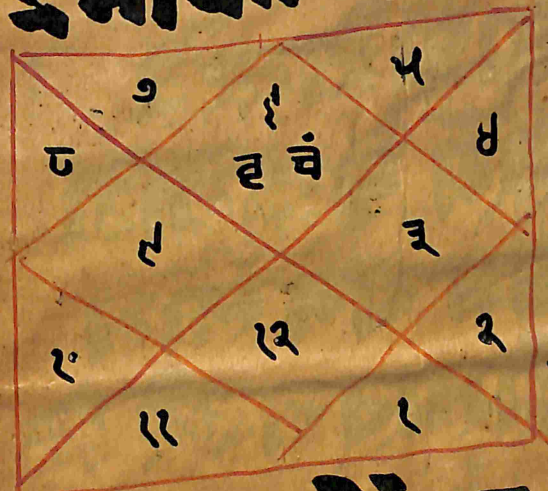 ७ ६ ५
८ चं ४
९ ३
१० १२ २
११ १